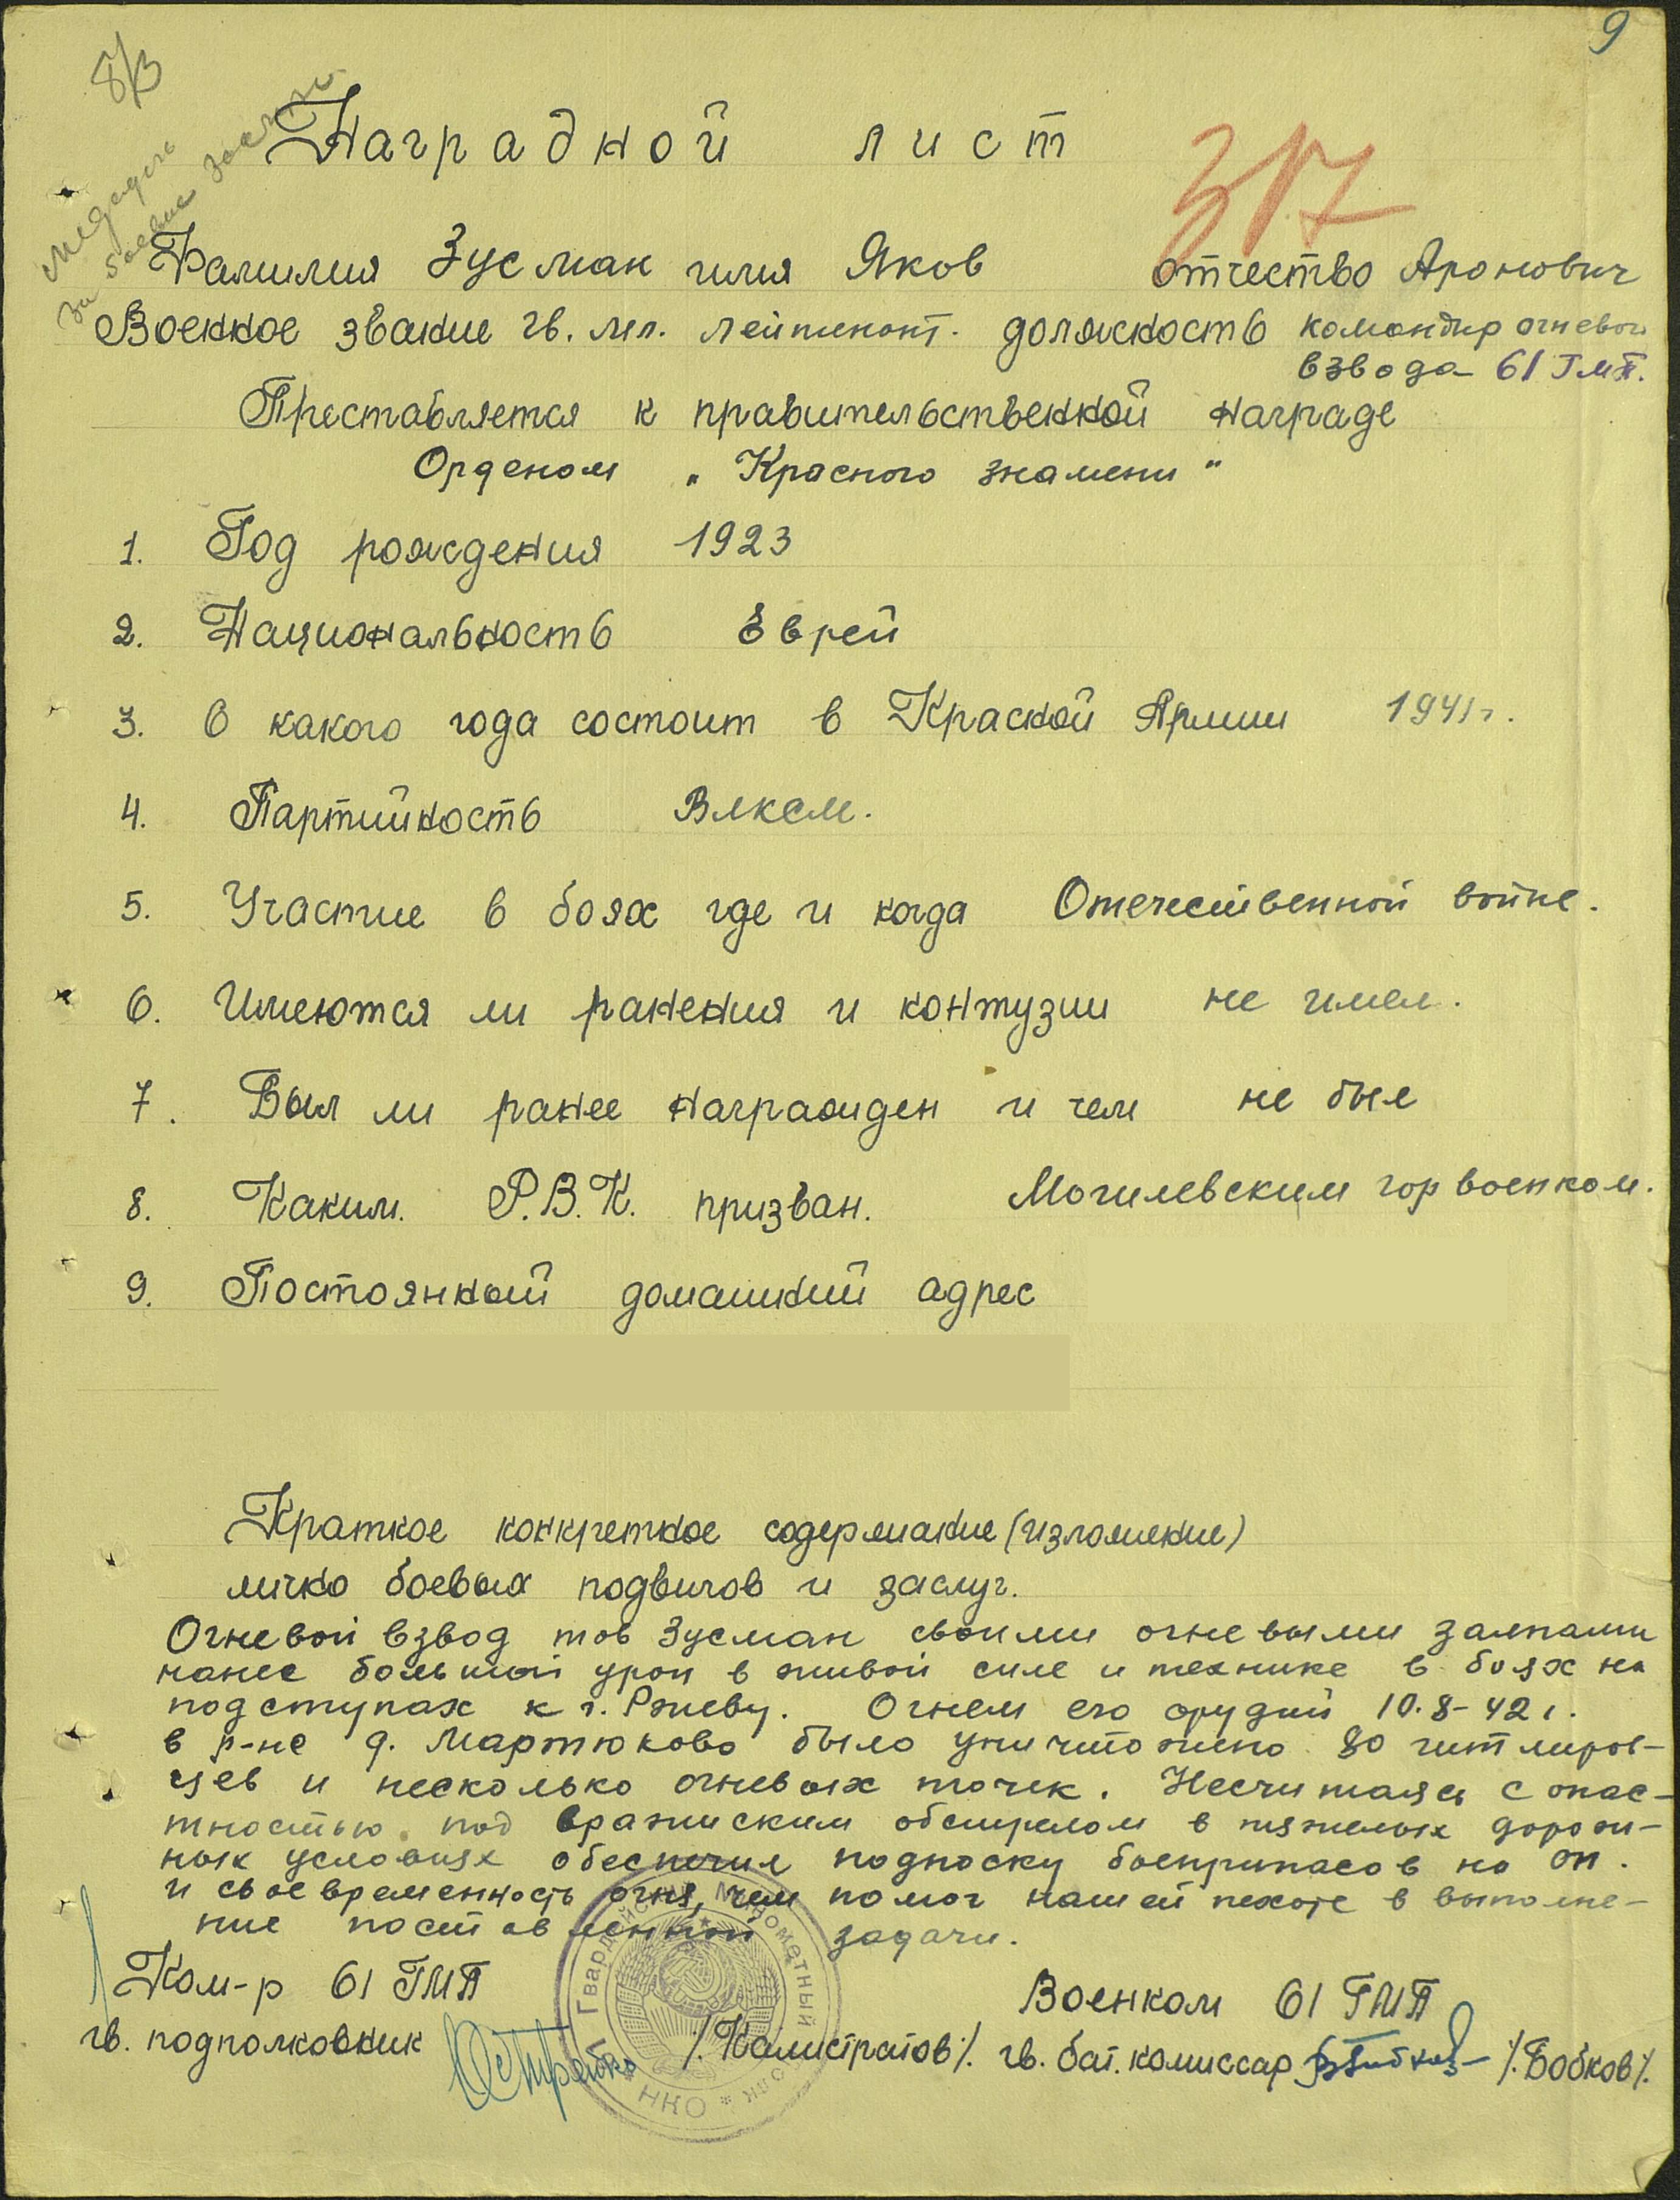 9
8/3
Медаль
за боевые заслуги
Наградной лист
317
Фамилия Зусман имя Яков отчество Аронович
Военное звание гв. мл. лейтенант. должность командир огневого
взвода 61 ГМП.
Преставляется к правительственной награде
Орденом "Красного знамени"
1. Год рождения 1923
2. Национальность Еврей
3. С какого года состоит в Краской Армии 1941 г.
4. Партийность Влксм.
5. Участие в боях где и когда Отечественной войне.
6. Имеются ли ранения и контузии не имел.
7. Был ли ранее награжиден и чем не был
8. Каким. Р.В.К. призван. Могилевским горвоенком.
9. Постоянный домашний адрес
Краткое конкретное содержание (изложение)
лично боевых подвигов и заслуг.
Огневой взвод тов Зусман своими огневыми залпами
нанес большой урон в живой силе и технике в боях на
подступах к г. Ржеву. Огнем его орудий 10.8-42 г.
в р-не д. Мартюково было уничтожено 80 гитлиров-
цев и несколько огневых точек. Несчитаясь с опас-
тностью под вражиским обстрелом в тяжелых дорож-
ных условиях обеспечил подноску боеприпасов на оп.
и своевременность огня, чем помог нашей пехоте в выполне-
ние поставленной задачи.
Ком-р 61 ГМП
Военком 61 ГМП
гв. подполковник /.Калистратов/. гв. бат. комиссар /.Бобков/.
Гвардейский Минометный
полк * НКО